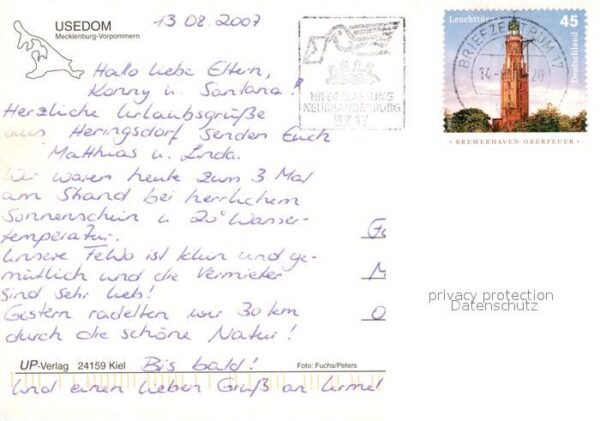 13 08. 2007
USEDOM
Mecklenburg-Vorpommern
Hallo liebe Eltern,
Konny u. Santana!
Herzliche Urlaubsgrüße
aus Heringsdorf Senden Euch
Matthias u. Linda.
Wir waren heute zum 3. Mal
am Strand bei herrlichem
Sonnenschein u 20° Wasser-
temperatur.
Unsere FeWo ist klein und ge-
mütlich und die Vermieter
sind sehr lieb!
Gestern radelten wir 30 km
durch die schöne Natur!
Bis bald!
Und einen lieben Gruß an
UP-Verlag 24159 Kiel
Foto: Fuchs/Peters
NIEDERLASSUNG
NEUBRANDENBURG
BZ 17
BRIEFZENTRUM 17
Leuchttürme
45
Deutschland
BREMERHAVEN OBERFEUER
privacy protection
Datenschutz